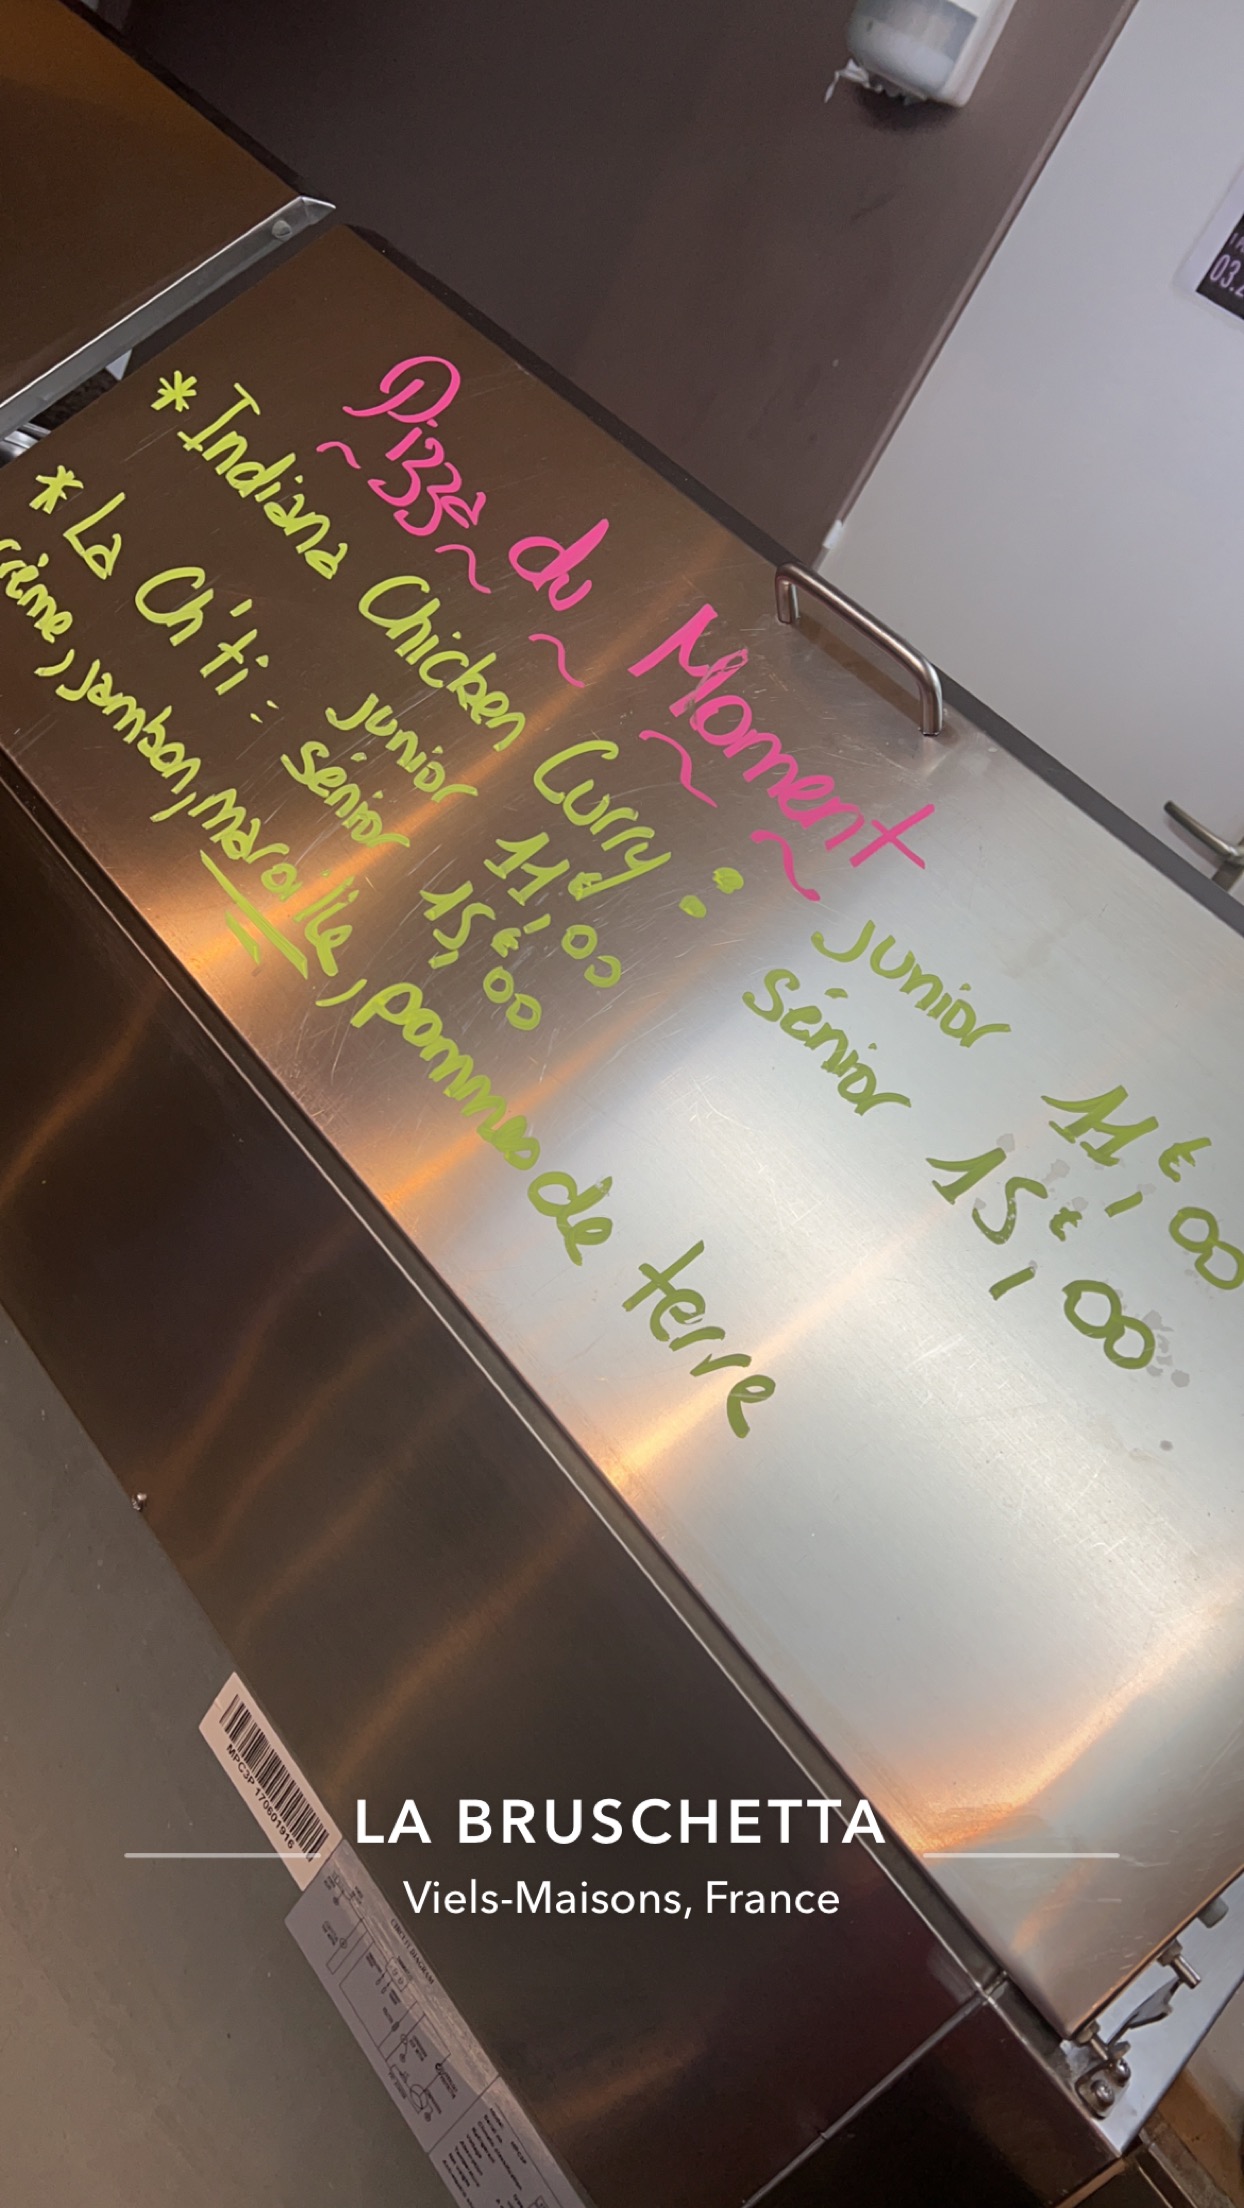 Pizza du Moment
* Indiana Chicken Curry : junior 11€,00
sénior 15€,00
* La Ch'ti : junior 11€,00
sénior 15€,00
crème, jambon, maroille, pommes de terre
03.2
MPC3P 170601916
CIRCUIT DIAGRAM
LA BRUSCHETTA
Viels-Maisons, France